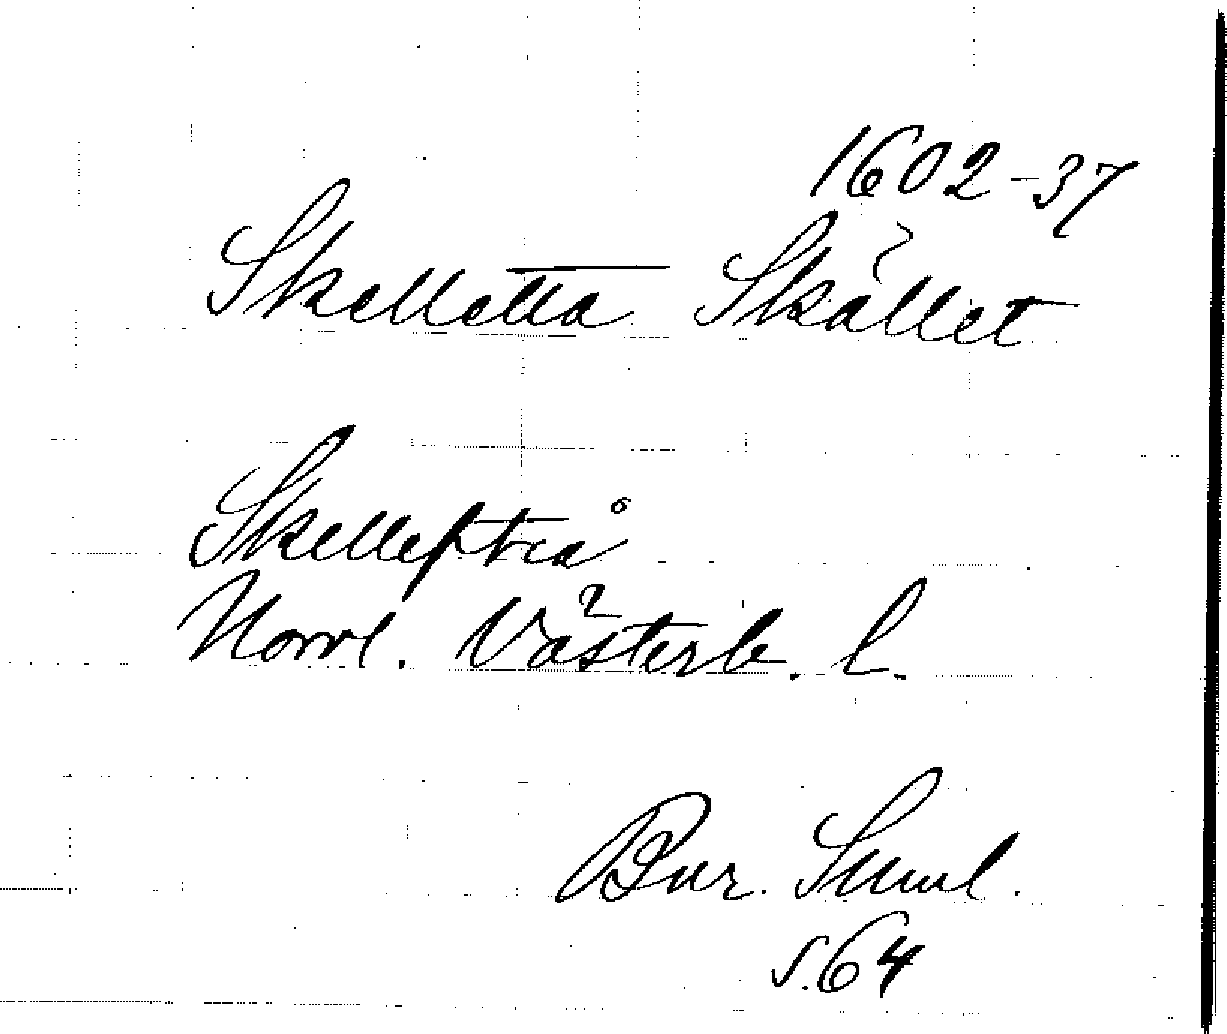 1602-37
Skelletta Skället
Skellefteå
Norrl. Västerb. l.
Bur. Suml.
s. 64